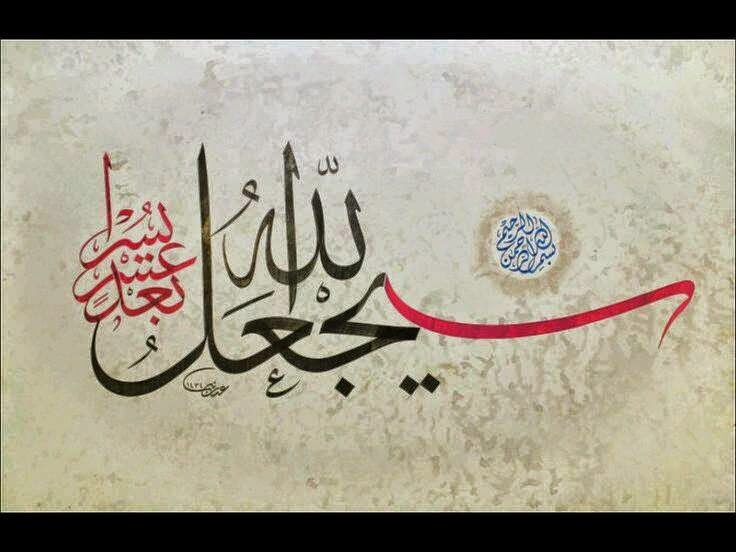 بسم الله الرحمن الرحيم
سَيَجْعَلُ اللّٰهُ بَعْدَ عُسْرٍ يُسْرًا